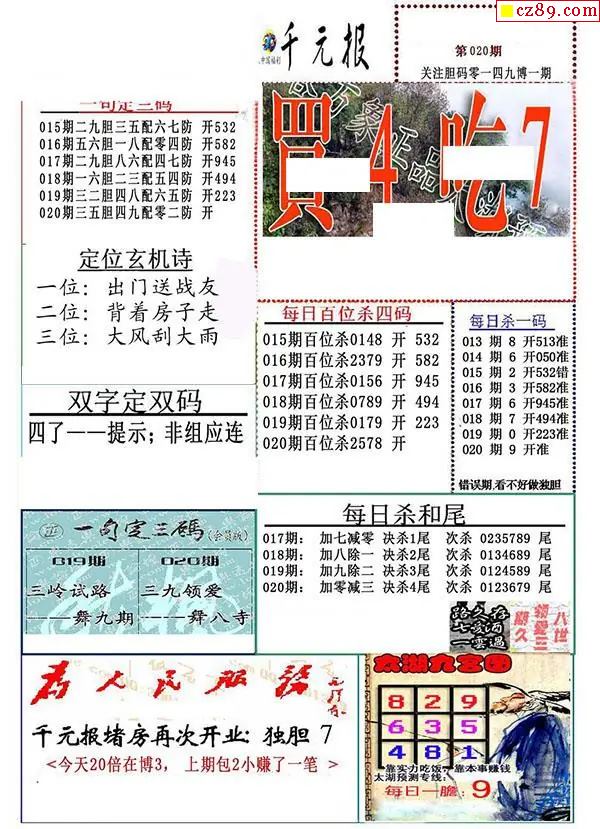 cz89.com
千元报
中国福利
第020期
关注胆码零一四九博一期
買4吃7
一句定三码
015期二九胆三五配六七防 开532
016期五六胆一八配零四防 开582
017期二九胆八六配四七防 开945
018期一六胆二三配五四防 开494
019期三二胆四八配六五防 开223
020期三五胆四九配零二防 开
定位玄机诗
一位：出门送战友
二位：背着房子走
三位：大风刮大雨
每日百位杀四码
015期百位杀0148 开 532
016期百位杀2379 开 582
017期百位杀0156 开 945
018期百位杀0789 开 494
019期百位杀0179 开 223
020期百位杀2578 开
每日杀一码
013 期 8 开513准
014 期 6 开050准
015 期 2 开532错
016 期 3 开582准
017 期 6 开945准
018 期 7 开494准
019 期 0 开223准
020 期 9 开准
错误期，看不好做独胆
双字定双码
四了——提示；非组应连
一句定三碼(会员版)
019期
三岭试路
——舞九期
020期
三九领爱
——舞八寺
每日杀和尾
017期： 加七减零 决杀1尾 次杀 0235789 尾
018期： 加八除一 决杀2尾 次杀 0134689 尾
019期： 加九除二 决杀3尾 次杀 0124589 尾
020期： 加零减三 决杀4尾 次杀 0123679 尾
为人民服务
千元报堵房再次开业：独胆 7
<今天20倍在博3， 上期包2小赚了一笔 >
太湖九宫图
8 2 9
6 3 5
4 8 1
靠实力吃饭，靠本事赚钱
太湖预测专线：
每日一胆：9